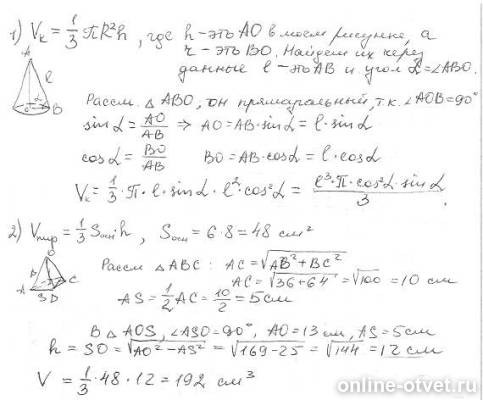 1) Vк = 1/3 πR²h, где h - это AO в моем рисунке, а
r - это BO. Найдем их через
данные l - это AB и угол α = ∠ABO.
A
l
O
α
B
Рассм. △ABO, он прямоугольный, т.к. ∠AOB = 90°
sin α = AO/AB ⇒ AO = AB · sin α = l · sin α
cos α = BO/AB BO = AB · cos α = l · cos α
Vк = 1/3 · π · l · sin α · l² · cos² α = l³ · π · cos² α · sin α / 3.
2) Vпир = 1/3 Sосн · h, Sосн = 6 · 8 = 48 см²
O
B
C
A
S
D
Рассм △ABC: AC = √(AB² + BC²)
AC = √(36 + 64) = √100 = 10 см
AS = 1/2 AC = 10/2 = 5 см
В △AOS, ∠ASO = 90°, AO = 13 см, AS = 5 см
h = SO = √(AO² - AS²) = √(169 - 25) = √144 = 12 см
V = 1/3 · 48 · 12 = 192 см³
online-otvet.ru